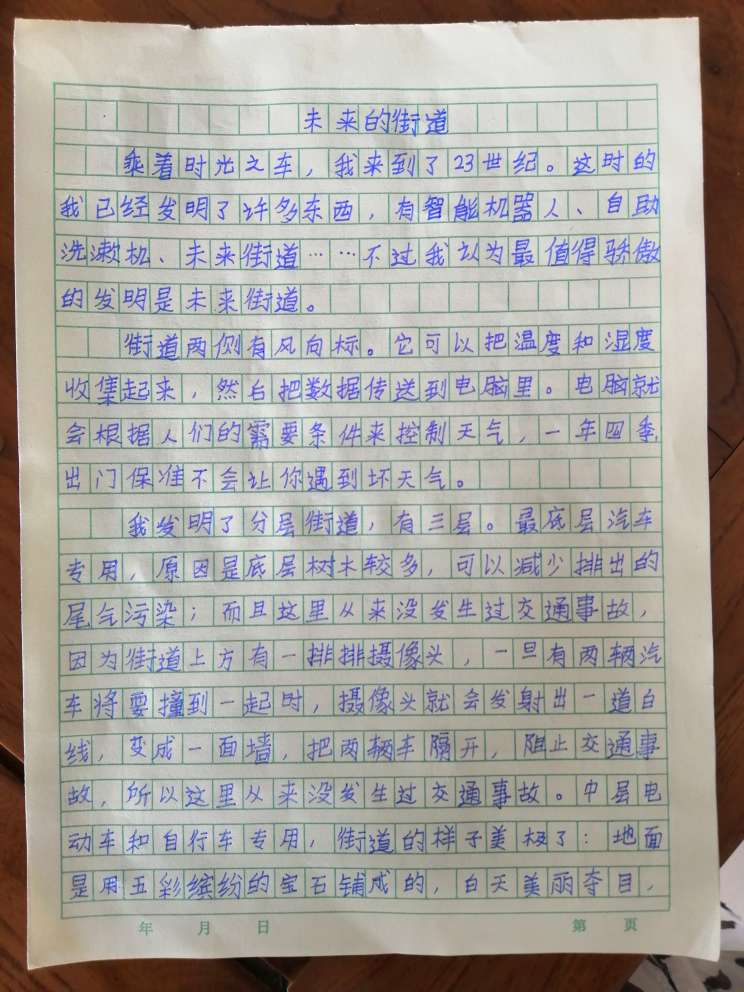 未来的街道
乘着时光之车，我来到了23世纪。这时的
我已经发明了许多东西，有智能机器人、自助
洗漱机、未来街道……不过我认为最值得骄傲
的发明是未来街道。
街道两侧有风向标。它可以把温度和湿度
收集起来，然后把数据传送到电脑里。电脑就
会根据人们的需要条件来控制天气，一年四季
出门保准不会让你遇到坏天气。
我发明了分层街道，有三层。最底层汽车
专用，原因是底层树木较多，可以减少排出的
尾气污染；而且这里从来没发生过交通事故，
因为街道上方有一排排摄像头，一旦有两辆汽
车将要撞到一起时，摄像头就会发射出一道白
线，变成一面墙，把两辆车隔开，阻止交通事
故，所以这里从来没发生过交通事故。中层电
动车和自行车专用，街道的样子美极了：地面
是用五彩缤纷的宝石铺成的，白天美丽夺目，
年 月 日 第 页